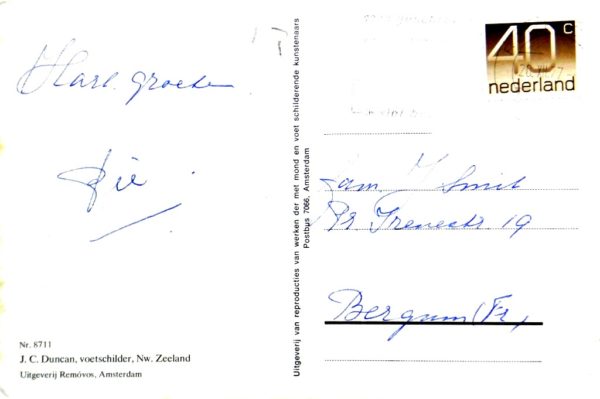 Hart. groeten
Nr. 8711
J. C. Duncan, voetschilder, Nw. Zeeland
Uitgeverij Remóvos, Amsterdam
Uitgeverij van reproducties van werken der met mond en voet schilderende kunstenaars
Postbus 7066, Amsterdam
40 c
nederland
Fam. Smit
Pr. Irenestr 19
Bergum (Fr)